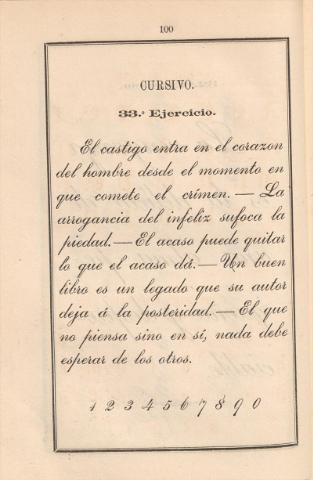 100
CURSIVO.
33.ª Ejercicio.
El castigo entra en el corazon
del hombre desde el momento en
que comete el crímen.—La
arrogancia del infeliz sufoca la
piedad.—El acaso puede quitar
lo que el acaso dá.—Un buen
libro es un legado que su autor
deja á la posteridad.—El que
no piensa sino en sí, nada debe
esperar de los otros.
1 2 3 4 5 6 7 8 9 0